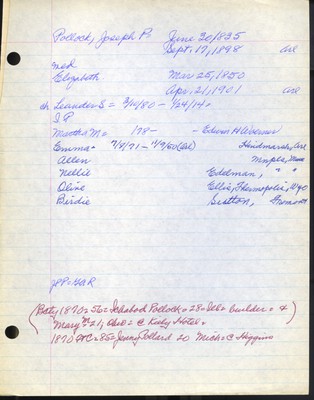 Pollock, Joseph P. June 30/835
Sept. 17, 1898 Arl
md
Elizabeth Mar 25, 1850
Apr. 21, 1901 Arl
ch Leander S = 3/10/80 - 1/24/14 =
J P
Martha M = 178- - Edwin H
Emma = 7/8/71 - 11/9/50 (Cal) Hindmarsh, Arl
Allen Maple,
Nellie Edelman, " "
Olive Ellis, Thermopolis, Wyo
Birdie Sutton,
JPP = GAR
(Baty 1870 = 56 = Ichabod Pollock = 28 = Ill = builder = &
Mary " 21, Ohio = @ Kuty Hotel =
1870 = 85 = Jenny Pollard 20 Mich = @ Higgins